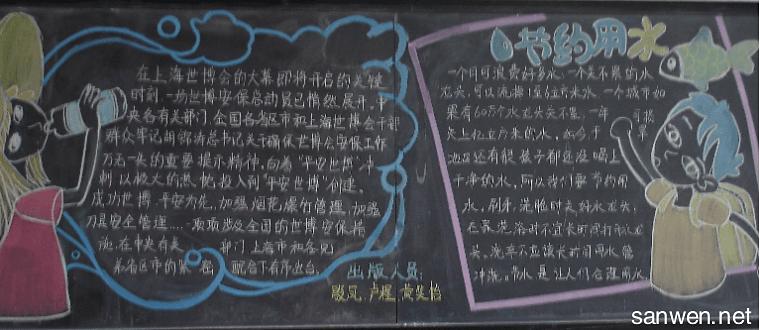 在上海世博会的大幕即将开启的关键
时刻,一场世博安保总动员已悄然展开。中
央各有关部门,全国各省区市和上海世博会干部
群众牢记胡锦涛总书记关于确保世博会安保工作
万无一失的重要指示精神,向着"平安世博"冲
刺,以极大的热忱投入到"平安世博"创建。
成功世博,平安为先,加强烟花爆竹管理,加强
刀具安全管理……一项项涉及全国的世博安保措
施,在中央有关部门上海市和各兄
弟省区市的紧密配合下有序出台。
出版人员:
节约用水
一个月可浪费好多水,一个关不紧的水
龙头,可以流掉1至6立方米水。一个城市如
果有60万个水龙头关不紧,一年可损
失上亿立方米的水。如今,干旱
地区还有很多孩子都还没喝上
干净的水,所以我们要节约用
水,刷牙,洗脸时关好水龙头;
在淋浴时不宜长时间打开龙
头,洗车不应该长时间用水管
冲洗。节水是让人们合理用水,
sanwen.net